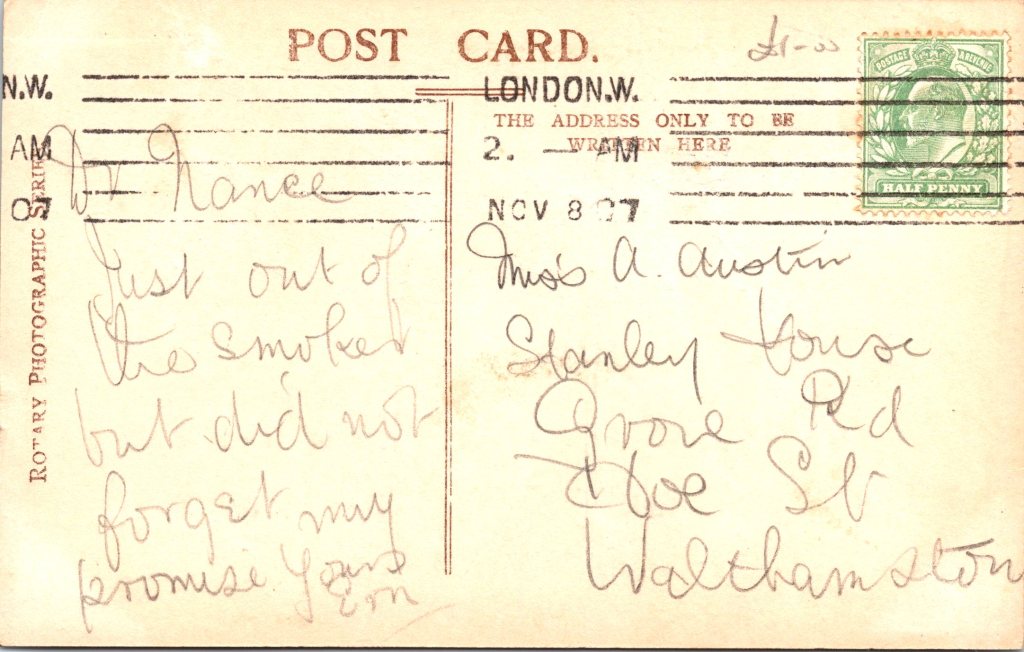 POST CARD.
£1-00
N.W.
AM
07
LONDON.W.
2. — AM
NOV 8 07
THE ADDRESS ONLY TO BE
WRITTEN HERE
POSTAGE & REVENUE
HALF PENNY
ROTARY PHOTOGRAPHIC SERIES
Dr Nance
Just out of
the smoker
but did not
forget my
promise Yours
Ern
Miss A. Austin
Stanley House
Grove Rd
Hoe St
Walthamstow